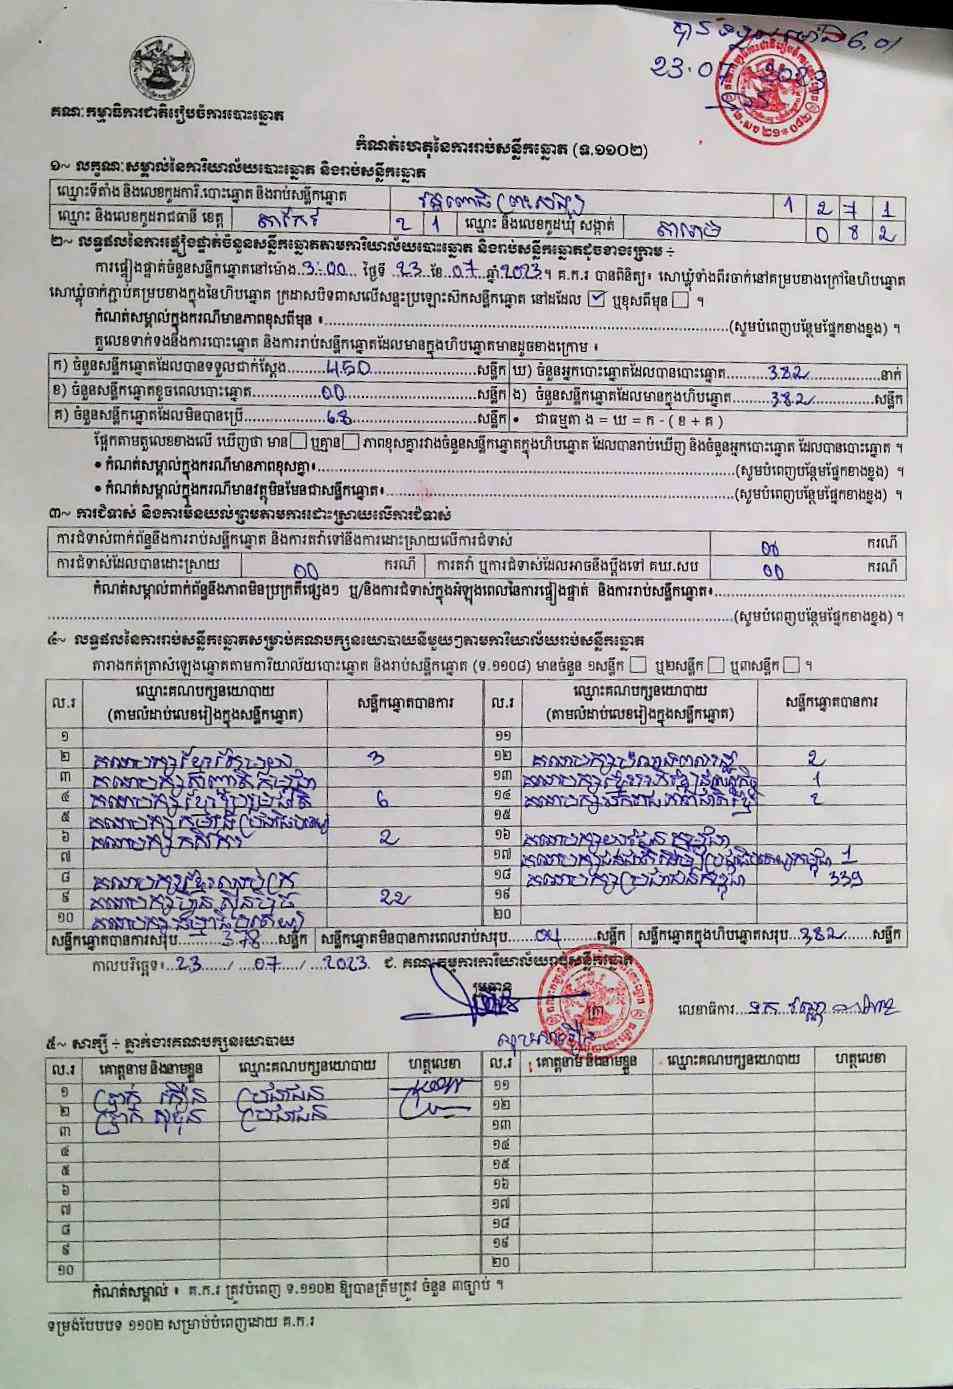 បានទទួលម៉ោង 6,01
23.07 2023
គណៈកម្មាធិការជាតិរៀបចំការបោះឆ្នោត
កំណត់ហេតុនៃការរាប់សន្លឹកឆ្នោត (ទ.១១០២)
១~ លក្ខណៈសម្គាល់នៃការិយាល័យបោះឆ្នោត និងរាប់សន្លឹកឆ្នោត
ឈ្មោះទីតាំង និងលេខកូដការិ.បោះឆ្នោត និងរាប់សន្លឹកឆ្នោត វត្តពោធិ៍ 1 2 7 1
ឈ្មោះ និងលេខកូដរាជធានី ខេត្ត តាកែវ 2 1 ឈ្មោះ និងលេខកូដឃុំ សង្កាត់ 0 8 2
២~ លទ្ធផលនៃការផ្ទៀងផ្ទាត់ចំនួនសន្លឹកឆ្នោតតាមការិយាល័យបោះឆ្នោត និងរាប់សន្លឹកឆ្នោតដូចខាងក្រោម ÷
ការផ្ទៀងផ្ទាត់ចំនួនសន្លឹកឆ្នោតនៅម៉ោង 3:00 ថ្ងៃទី 23 ខែ 07 ឆ្នាំ 2023។ គ.ក.រ បានពិនិត្យ៖ សោឃ្លុំទាំងពីរចាក់នៅគម្របខាងក្រៅនៃហិបឆ្នោត
សោឃ្លុំចាក់ភ្ជាប់គម្របខាងក្នុងនៃហិបឆ្នោត ក្រដាសបិទពាសលើសន្ទះប្រឡោះស៊កសន្លឹកឆ្នោត នៅដដែល ☑ ឬខុសពីមុន ☐ ។
កំណត់សម្គាល់ក្នុងករណីមានភាពខុសពីមុន ៖ (សូមបំពេញបន្ថែមផ្នែកខាងខ្នង) ។
តួលេខទាក់ទងនឹងការបោះឆ្នោត និងការរាប់សន្លឹកឆ្នោតដែលមានក្នុងហិបឆ្នោតមានដូចខាងក្រោម ៖
ក) ចំនួនសន្លឹកឆ្នោតដែលបានទទួលជាក់ស្តែង 450 សន្លឹក ឃ) ចំនួនអ្នកបោះឆ្នោតដែលបានបោះឆ្នោត 382 នាក់
ខ) ចំនួនសន្លឹកឆ្នោតខូចពេលបោះឆ្នោត 00 សន្លឹក ង) ចំនួនសន្លឹកឆ្នោតដែលមានក្នុងហិបឆ្នោត 382 សន្លឹក
គ) ចំនួនសន្លឹកឆ្នោតដែលមិនបានប្រើ 68 សន្លឹក • ជាធម្មតា ង = ឃ = ក - ( ខ + គ )
ផ្អែកតាមតួលេខខាងលើ ឃើញថា មាន ☐ ឬគ្មាន ☐ ភាពខុសគ្នារវាងចំនួនសន្លឹកឆ្នោតក្នុងហិបឆ្នោត ដែលបានរាប់ឃើញ និងចំនួនអ្នកបោះឆ្នោត ដែលបានបោះឆ្នោត ។
• កំណត់សម្គាល់ក្នុងករណីមានភាពខុសគ្នា៖ (សូមបំពេញបន្ថែមផ្នែកខាងខ្នង) ។
• កំណត់សម្គាល់ក្នុងករណីមានវត្ថុមិនមែនជាសន្លឹកឆ្នោត៖ (សូមបំពេញបន្ថែមផ្នែកខាងខ្នង) ។
៣~ ការជំទាស់ និងការមិនយល់ព្រមតាមការដោះស្រាយលើការជំទាស់
ការជំទាស់ពាក់ព័ន្ធនឹងការរាប់សន្លឹកឆ្នោត និងការតវ៉ាទៅនឹងការដោះស្រាយលើការជំទាស់ 00 ករណី
ការជំទាស់ដែលបានដោះស្រាយ 00 ករណី ការតវ៉ា ឬការជំទាស់ដែលអាចនឹងប្តឹងទៅ គឃ.សប 00 ករណី
កំណត់សម្គាល់ពាក់ព័ន្ធនឹងភាពមិនប្រក្រតីផ្សេងៗ ឬ/និងការជំទាស់ក្នុងអំឡុងពេលនៃការផ្ទៀងផ្ទាត់ និងការរាប់សន្លឹកឆ្នោត៖
(សូមបំពេញបន្ថែមផ្នែកខាងខ្នង) ។
៤~ លទ្ធផលនៃការរាប់សន្លឹកឆ្នោតសម្រាប់គណបក្សនយោបាយនីមួយៗតាមការិយាល័យរាប់សន្លឹកឆ្នោត
តារាងកត់ត្រាសំឡេងឆ្នោតតាមការិយាល័យបោះឆ្នោត និងរាប់សន្លឹកឆ្នោត (ទ.១១០៨) មានចំនួន ១សន្លឹក ☐ ឬ២សន្លឹក ☐ ឬ៣សន្លឹក ☐ ។
ល.រ ឈ្មោះគណបក្សនយោបាយ (តាមលំដាប់លេខរៀងក្នុងសន្លឹកឆ្នោត) សន្លឹកឆ្នោតបានការ ល.រ ឈ្មោះគណបក្សនយោបាយ (តាមលំដាប់លេខរៀងក្នុងសន្លឹកឆ្នោត) សន្លឹកឆ្នោតបានការ
១ ១១
២ គណបក្ស 3 ១២ គណបក្ស 2
៣ គណបក្ស ១៣ គណបក្ស 1
៤ គណបក្ស 6 ១៤ គណបក្ស 2
៥ គណបក្ស ១៥
៦ គណបក្ស កសិករ 2 ១៦ គណបក្ស កម្ពុជា
៧ ១៧ គណបក្ស 1
៨ គណបក្ស ១៨ គណបក្សប្រជាជនកម្ពុជា 339
៩ គណបក្សហ៊្វុនស៊ិនប៉ិច 22 ១៩
១០ គណបក្ស ២០
សន្លឹកឆ្នោតបានការសរុប 378 សន្លឹក សន្លឹកឆ្នោតមិនបានការពេលរាប់សរុប 04 សន្លឹក សន្លឹកឆ្នោតក្នុងហិបឆ្នោតសរុប 382 សន្លឹក
កាលបរិច្ឆេទ៖ 23 / 07 / 2023 ជ. គណៈកម្មការការិយាល័យរាប់សន្លឹកឆ្នោត
ប្រធាន
លេខាធិការ
៥~ សាក្សី ÷ ភ្នាក់ងារគណបក្សនយោបាយ
ល.រ គោត្តនាម និងនាមខ្លួន ឈ្មោះគណបក្សនយោបាយ ហត្ថលេខា ល.រ គោត្តនាម និងនាមខ្លួន ឈ្មោះគណបក្សនយោបាយ ហត្ថលេខា
១ ប្រាក់ ប្រជាជន ១១
២ ប្រាក់ ប្រជាជន ១២
៣ ១៣
៤ ១៤
៥ ១៥
៦ ១៦
៧ ១៧
៨ ១៨
៩ ១៩
១០ ២០
កំណត់សម្គាល់ ៖ គ.ក.រ ត្រូវបំពេញ ទ.១១០២ ឱ្យបានត្រឹមត្រូវ ចំនួន ៣ច្បាប់ ។
ទម្រង់បែបបទ ១១០២ សម្រាប់បំពេញដោយ គ.ក.រ